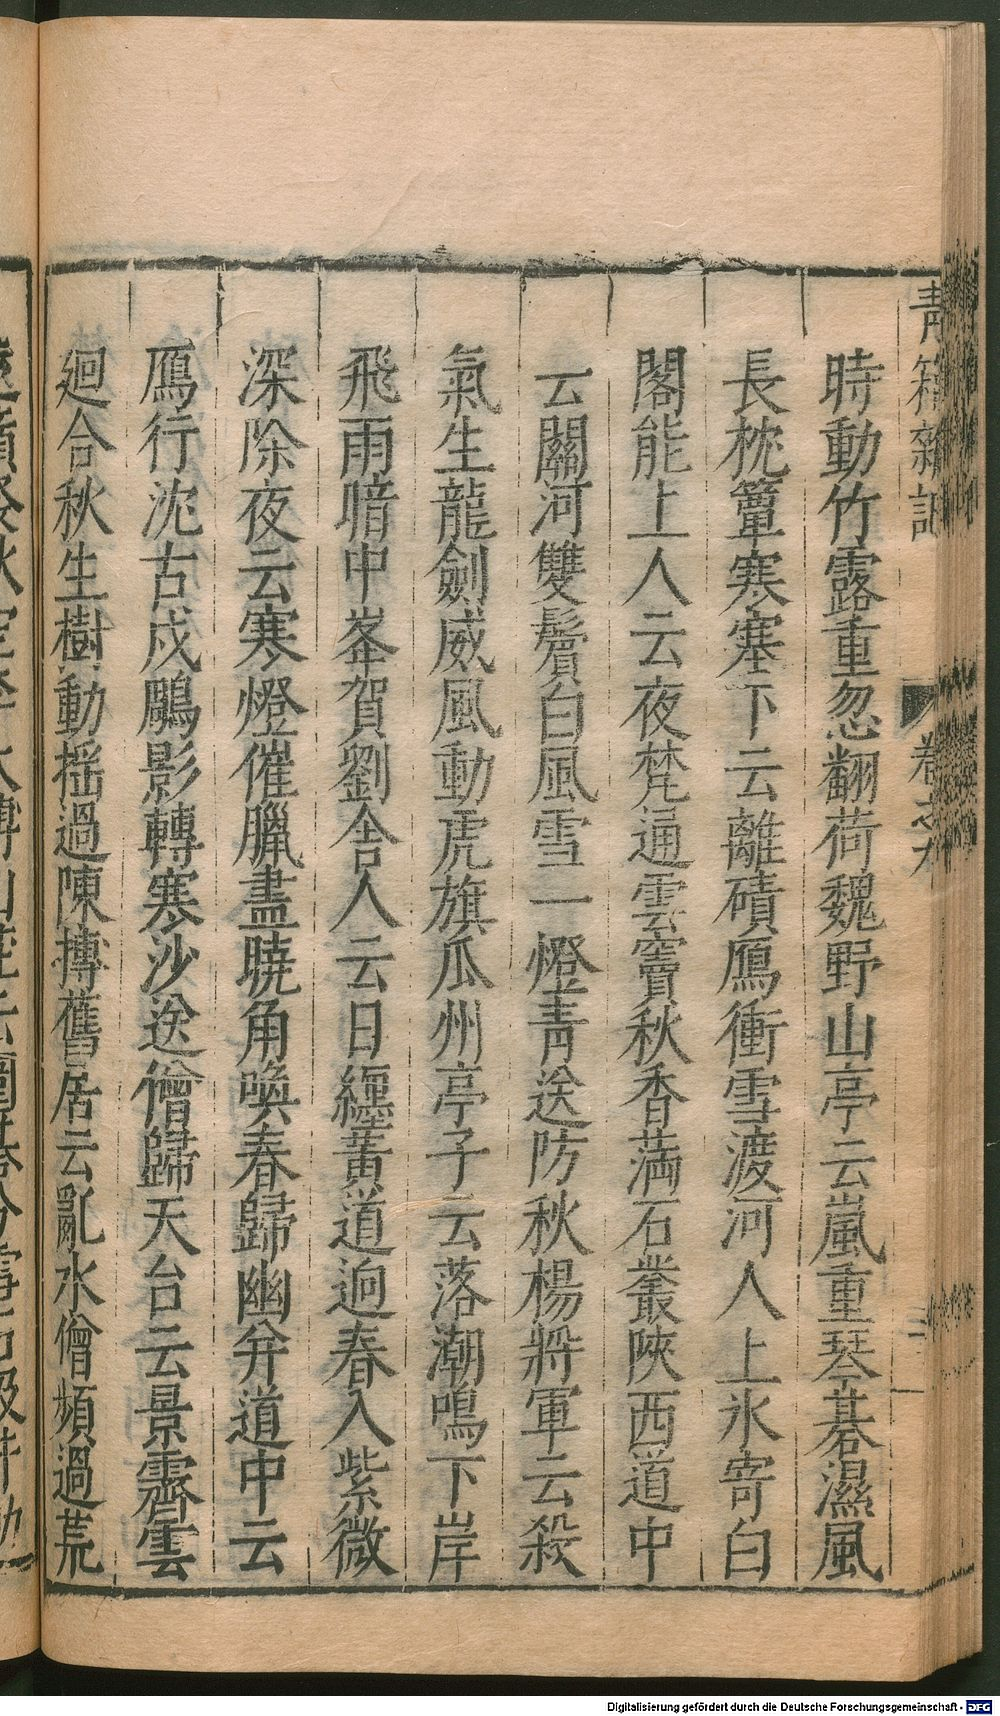 青箱雜記
卷之九
時動竹露重忽翻荷魏野山亭云嵐重琴棊濕風
長枕簟寒塞下云離磧鴈衝雪渡河人上氷寄白
閣能上人云夜梵通雲竇秋香滿石叢陝西道中
云關河雙鬢白風雪一燈青送防秋楊將軍云殺
氣生龍劍威風動虎旗瓜州亭子云落潮鳴下岸
飛雨暗中峯賀劉舍人云日纒黃道逈春入紫微
深除夜云寒燈催臘盡曉角喚春歸幽幷道中云
鴈行沈古戍鵰影轉寒沙送僧歸天台云景霽雲
廻合秋生樹動揺過陳摶舊居云亂水僧頻過荒
Digitalisierung gefördert durch die Deutsche Forschungsgemeinschaft - DFG